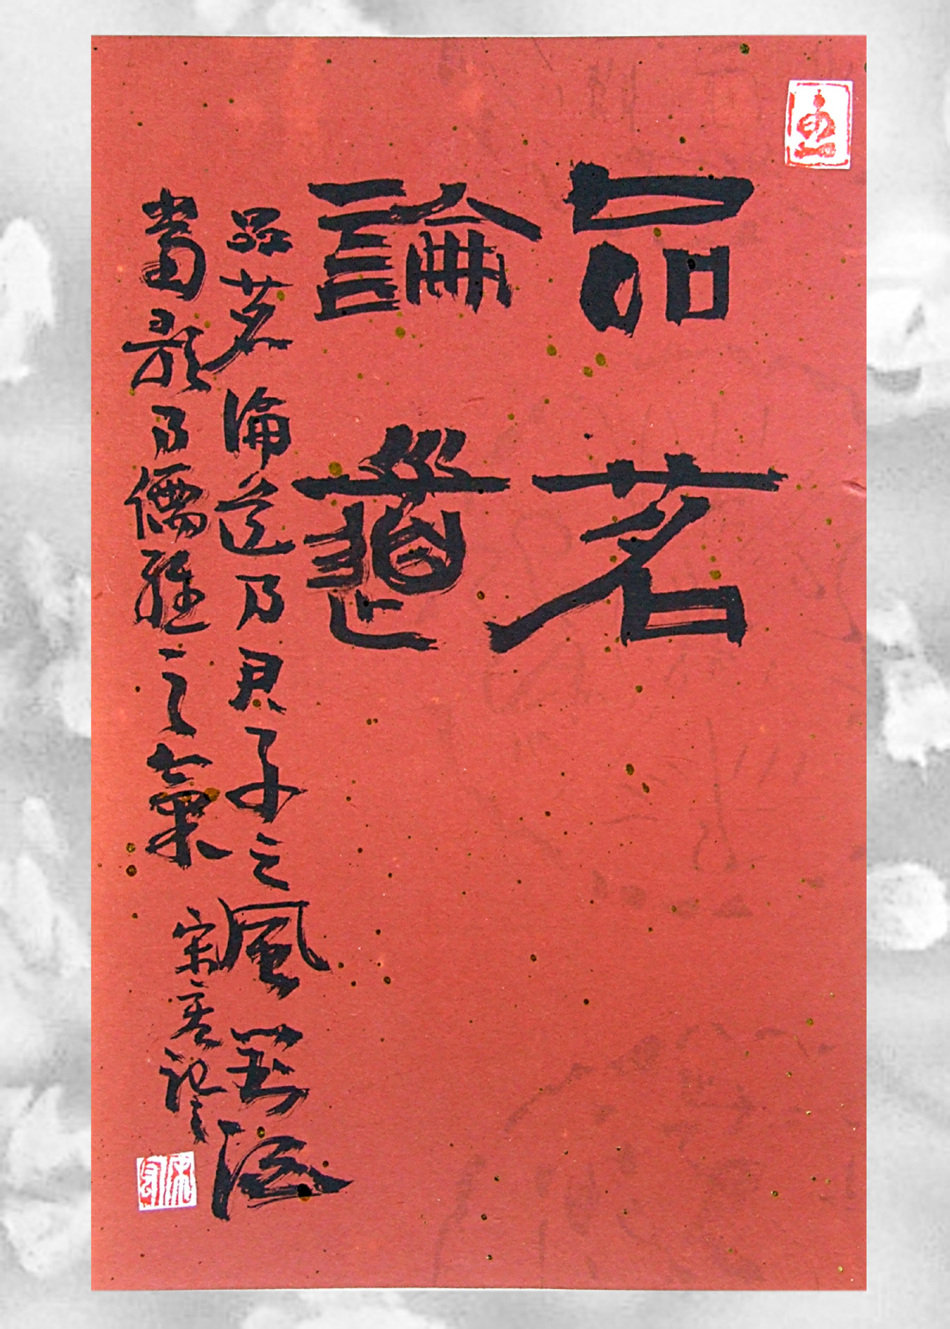 品茗
論道
品茗論道乃君子之風習
當飲乃儒雅之氣
宋